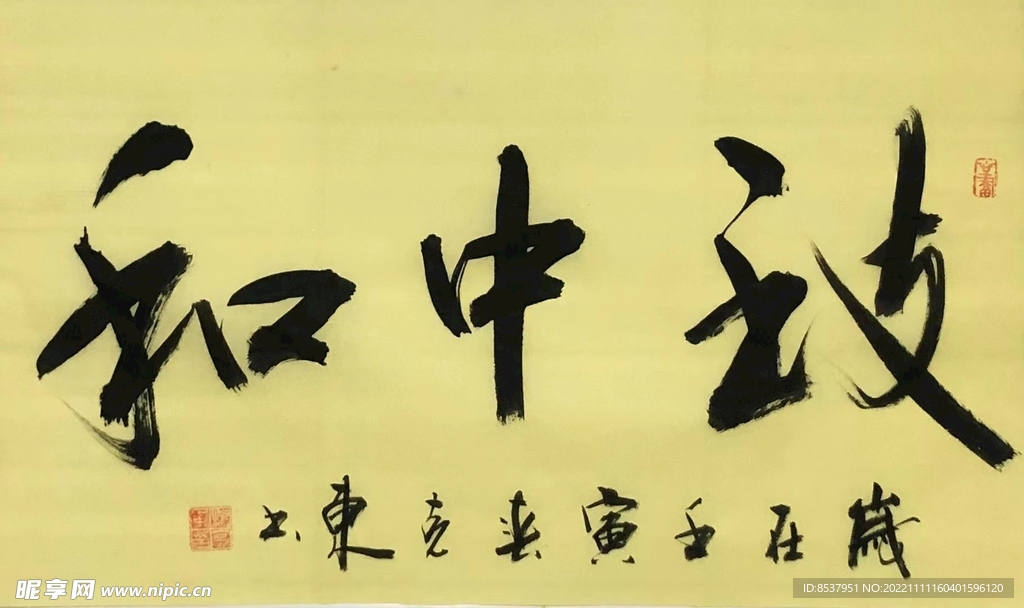 致中和
歲在壬寅春克東书
昵享网 www.nipic.cn
ID:8537951 NO:20221111160401596120